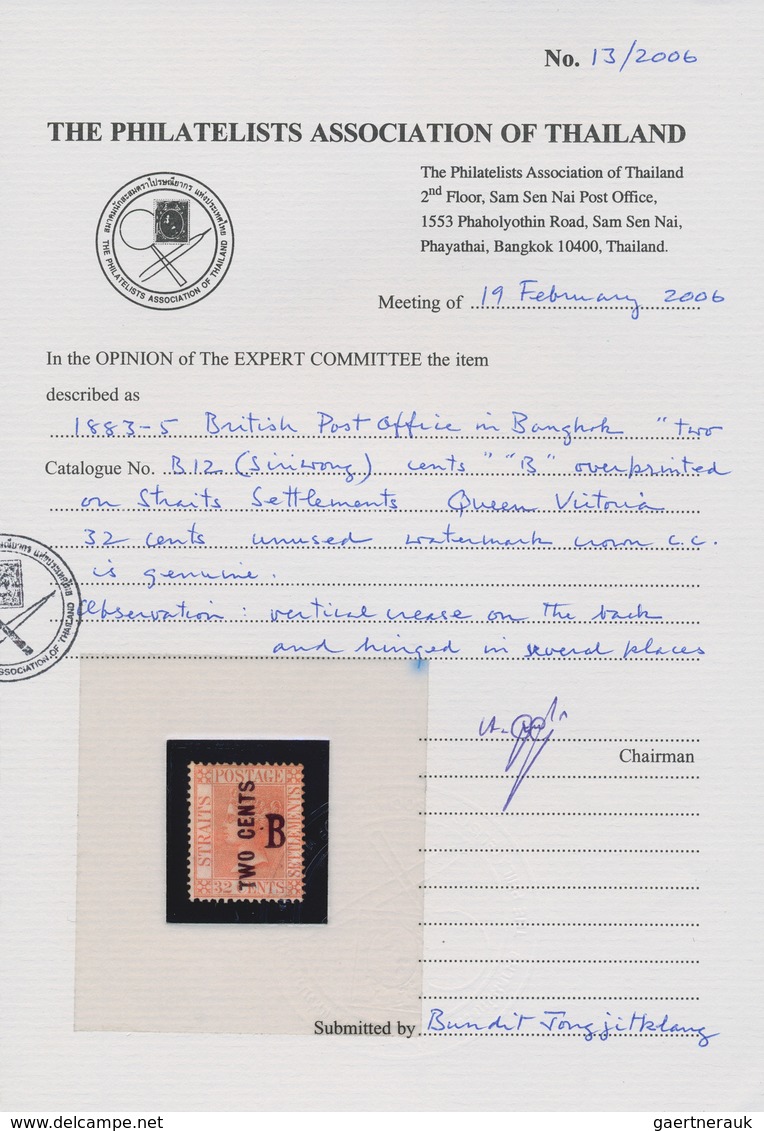 No. 13/2006
THE PHILATELISTS ASSOCIATION OF THAILAND
สมาคมนักสะสมตราไปรษณียากร แห่งประเทศไทย
THE PHILATELISTS ASSOCIATION OF THAILAND
The Philatelists Association of Thailand
2nd Floor, Sam Sen Nai Post Office,
1553 Phaholyothin Road, Sam Sen Nai,
Phayathai, Bangkok 10400, Thailand.
Meeting of 19 February 2006
In the OPINION of The EXPERT COMMITTEE the item
described as
1883-5 British Post Office in Bangkok "two
Catalogue No. B12 (Siriwong) cents" "B" overprinted
on Straits Settlements Queen Victoria
32 cents unused watermark crown c.c.
is genuine.
Observation: vertical crease on the back
and hinged in several places
ASSOCIATION OF THAILAND
Chairman
POSTAGE
STRAITS
SETTLEMENTS
TWO CENTS
B
32 CENTS
Submitted by Bundit Tongjitklang
www.delcampe.net
gaertnerauk